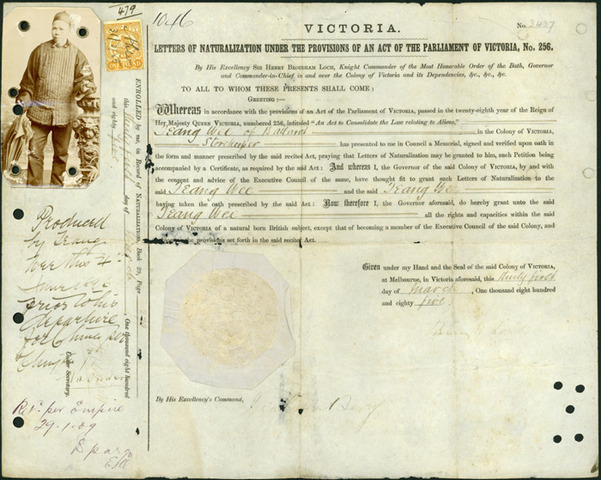 479
1046
No. 2427
VICTORIA.
LETTERS OF NATURALIZATION UNDER THE PROVISIONS OF AN ACT OF THE PARLIAMENT OF VICTORIA, No. 256.
By His Excellency SIR HENRY BROUGHAM LOCH, Knight Commander of the Most Honorable Order of the Bath, Governor
and Commander-in-Chief in and over the Colony of Victoria and its Dependencies, &c., &c., &c.
TO ALL TO WHOM THESE PRESENTS SHALL COME:
GREETING:—
Whereas in accordance with the provisions of an Act of the Parliament of Victoria, passed in the twenty-eighth year of the Reign of
Her Majesty QUEEN VICTORIA, numbered 256, intituled "An Act to Consolidate the Law relating to Aliens,"
Teang Wee of Ballarat in the Colony of Victoria,
Storekeeper has presented to me in Council a Memorial, signed and verified upon oath in
the form and manner prescribed by the said recited Act, praying that Letters of Naturalization may be granted to him, such Petition being
accompanied by a Certificate, as required by the said Act: And whereas I, the Governor of the said Colony of Victoria, by and with
the consent and advice of the Executive Council of the same, have thought fit to grant such Letters of Naturalization to the
said Teang Wee and the said Teang Wee
having taken the oath prescribed by the said Act: Now therefore I, the Governor aforesaid, do hereby grant unto the said
Teang Wee all the rights and capacities within the said
Colony of Victoria of a natural born British subject, except that of becoming a member of the Executive Council of the said Colony, and
except the provisions set forth in the said recited Act.
Given under my Hand and the Seal of the said Colony of Victoria,
at Melbourne, in Victoria aforesaid, this thirty first
day of March, One thousand eight hundred
and eighty five.
By His Excellency's Command,
ENROLLED by me, in Record of Naturalization, Book 20, Page
day of
One thousand eight hundred
and eighty five
Under Secretary.
Produced
by Teang
Wee this 4th
prior to his
departure
for China per
Ret. per Empire
29-1-09